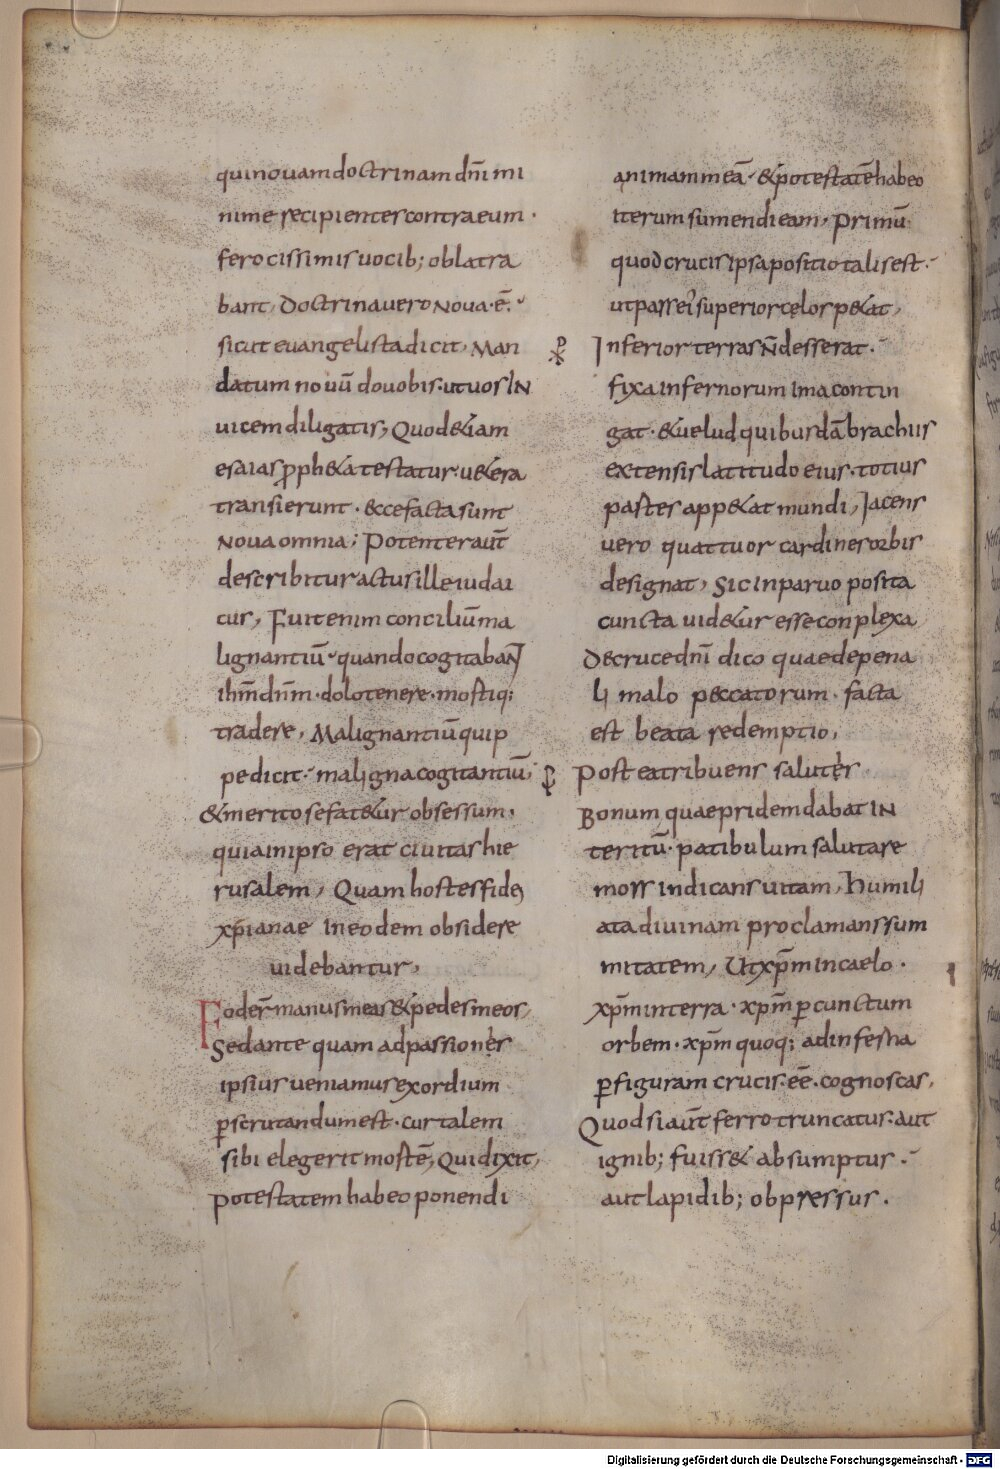 qui nouam doctrinam dn̄i mi
nime recipientes contra eum ·
ferocissimis uocib; oblatra
bant, Doctrina uero Noua · ē ·
sicut euangelista dicit, Man
datum nouū do uobis · ut uos IN
uicem diligatis, Quod &iam
esaias proph&a testatur · u&era
transierunt · &ecce facta sunt
Noua omnia; Potenter aūt
describitur actus ille iudai
cus, Fuit enim conciliū ma
lignantiū · quando cogitabaNT
ihm̄ dnm̄ · dolo tenere · mortiq;
tradere, Malignantiū quip
pe dicit · maligna cogitantiū,
& merito se fat&ur obsessum,
quia in ipso erat ciuitas hie
rusalem, Quam hostes fidei
xp̄ianae in eodem obsidere
uidebantur,
Foder̄ manus meas & pedes meos,
Sed antequam ad passionēs
ipsius ueniamus exordium
p̱scrutandum est · cur talem
sibi elegerit mortē, Qui dixit,
Potestatem habeo ponendi
animam meā · & potestatē habeo
iterum sumendi eam, Primū
quod crucis ipsa positio talis est ·
ut pars ei' superior cęlos p&at,
Inferior terras N̄ desserat ·
fixa infernorum ima contin
gat · & uelud quibusdā brachiis
extensis latitudo eius · totius
partes app&at mundi, Iacens
uero quattuor cardines orbis
designat, Sic in paruo posita
cuncta uid&ur esse conplexa
De cruce dn̄i dico quae de pena
li malo peccatorum · facta
est beata redemptio,
Postea tribuens salutēs ·
Bonum quae pridem dabat IN
teritū · patibulum salutare
mors indicans uitam, Humili
ata diuinam proclamans sum
mitatem, Ut xp̄m in caelo ·
xp̄m in terra · xp̄m p̱ cunctum
orbem · xp̄m quoq; ad infesta
p̱ figuram crucis · eē · cognoscas,
Quod si aūt ferro truncatus · aut
ignib; fuiss& absumptus ·
aut lapidib; obpressus ·
Digitalisierung gefördert durch die Deutsche Forschungsgemeinschaft - DFG